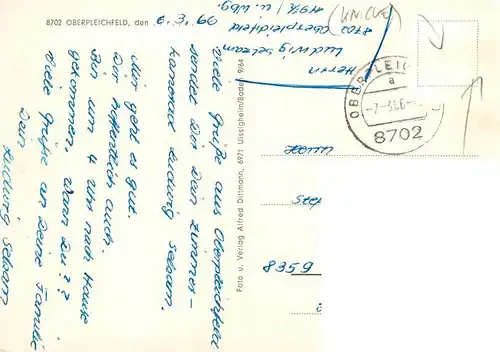 8702 OBERPLEICHFELD, den 6.3.66
Viele Grüße aus Oberpleichfeld
sendet Dir Dein Zimmer-
kamerad Ludwig Selsam.
Mir geht es gut.
Dir hoffentlich auch.
Bin um 4 Uhr nach Hause
gekommen, wann Du??
Viele Grüße an Deine Familie
Dein
Ludwig Selsam
Foto u. Verlag Alfred Dittmann, 6971 Uissigheim/Baden 9/64
Herrn
Ludwig Selsam
8702 Oberpleichfeld
(KNICKE)
OBERPLEICH
a
-7-3.66-
8702
8359